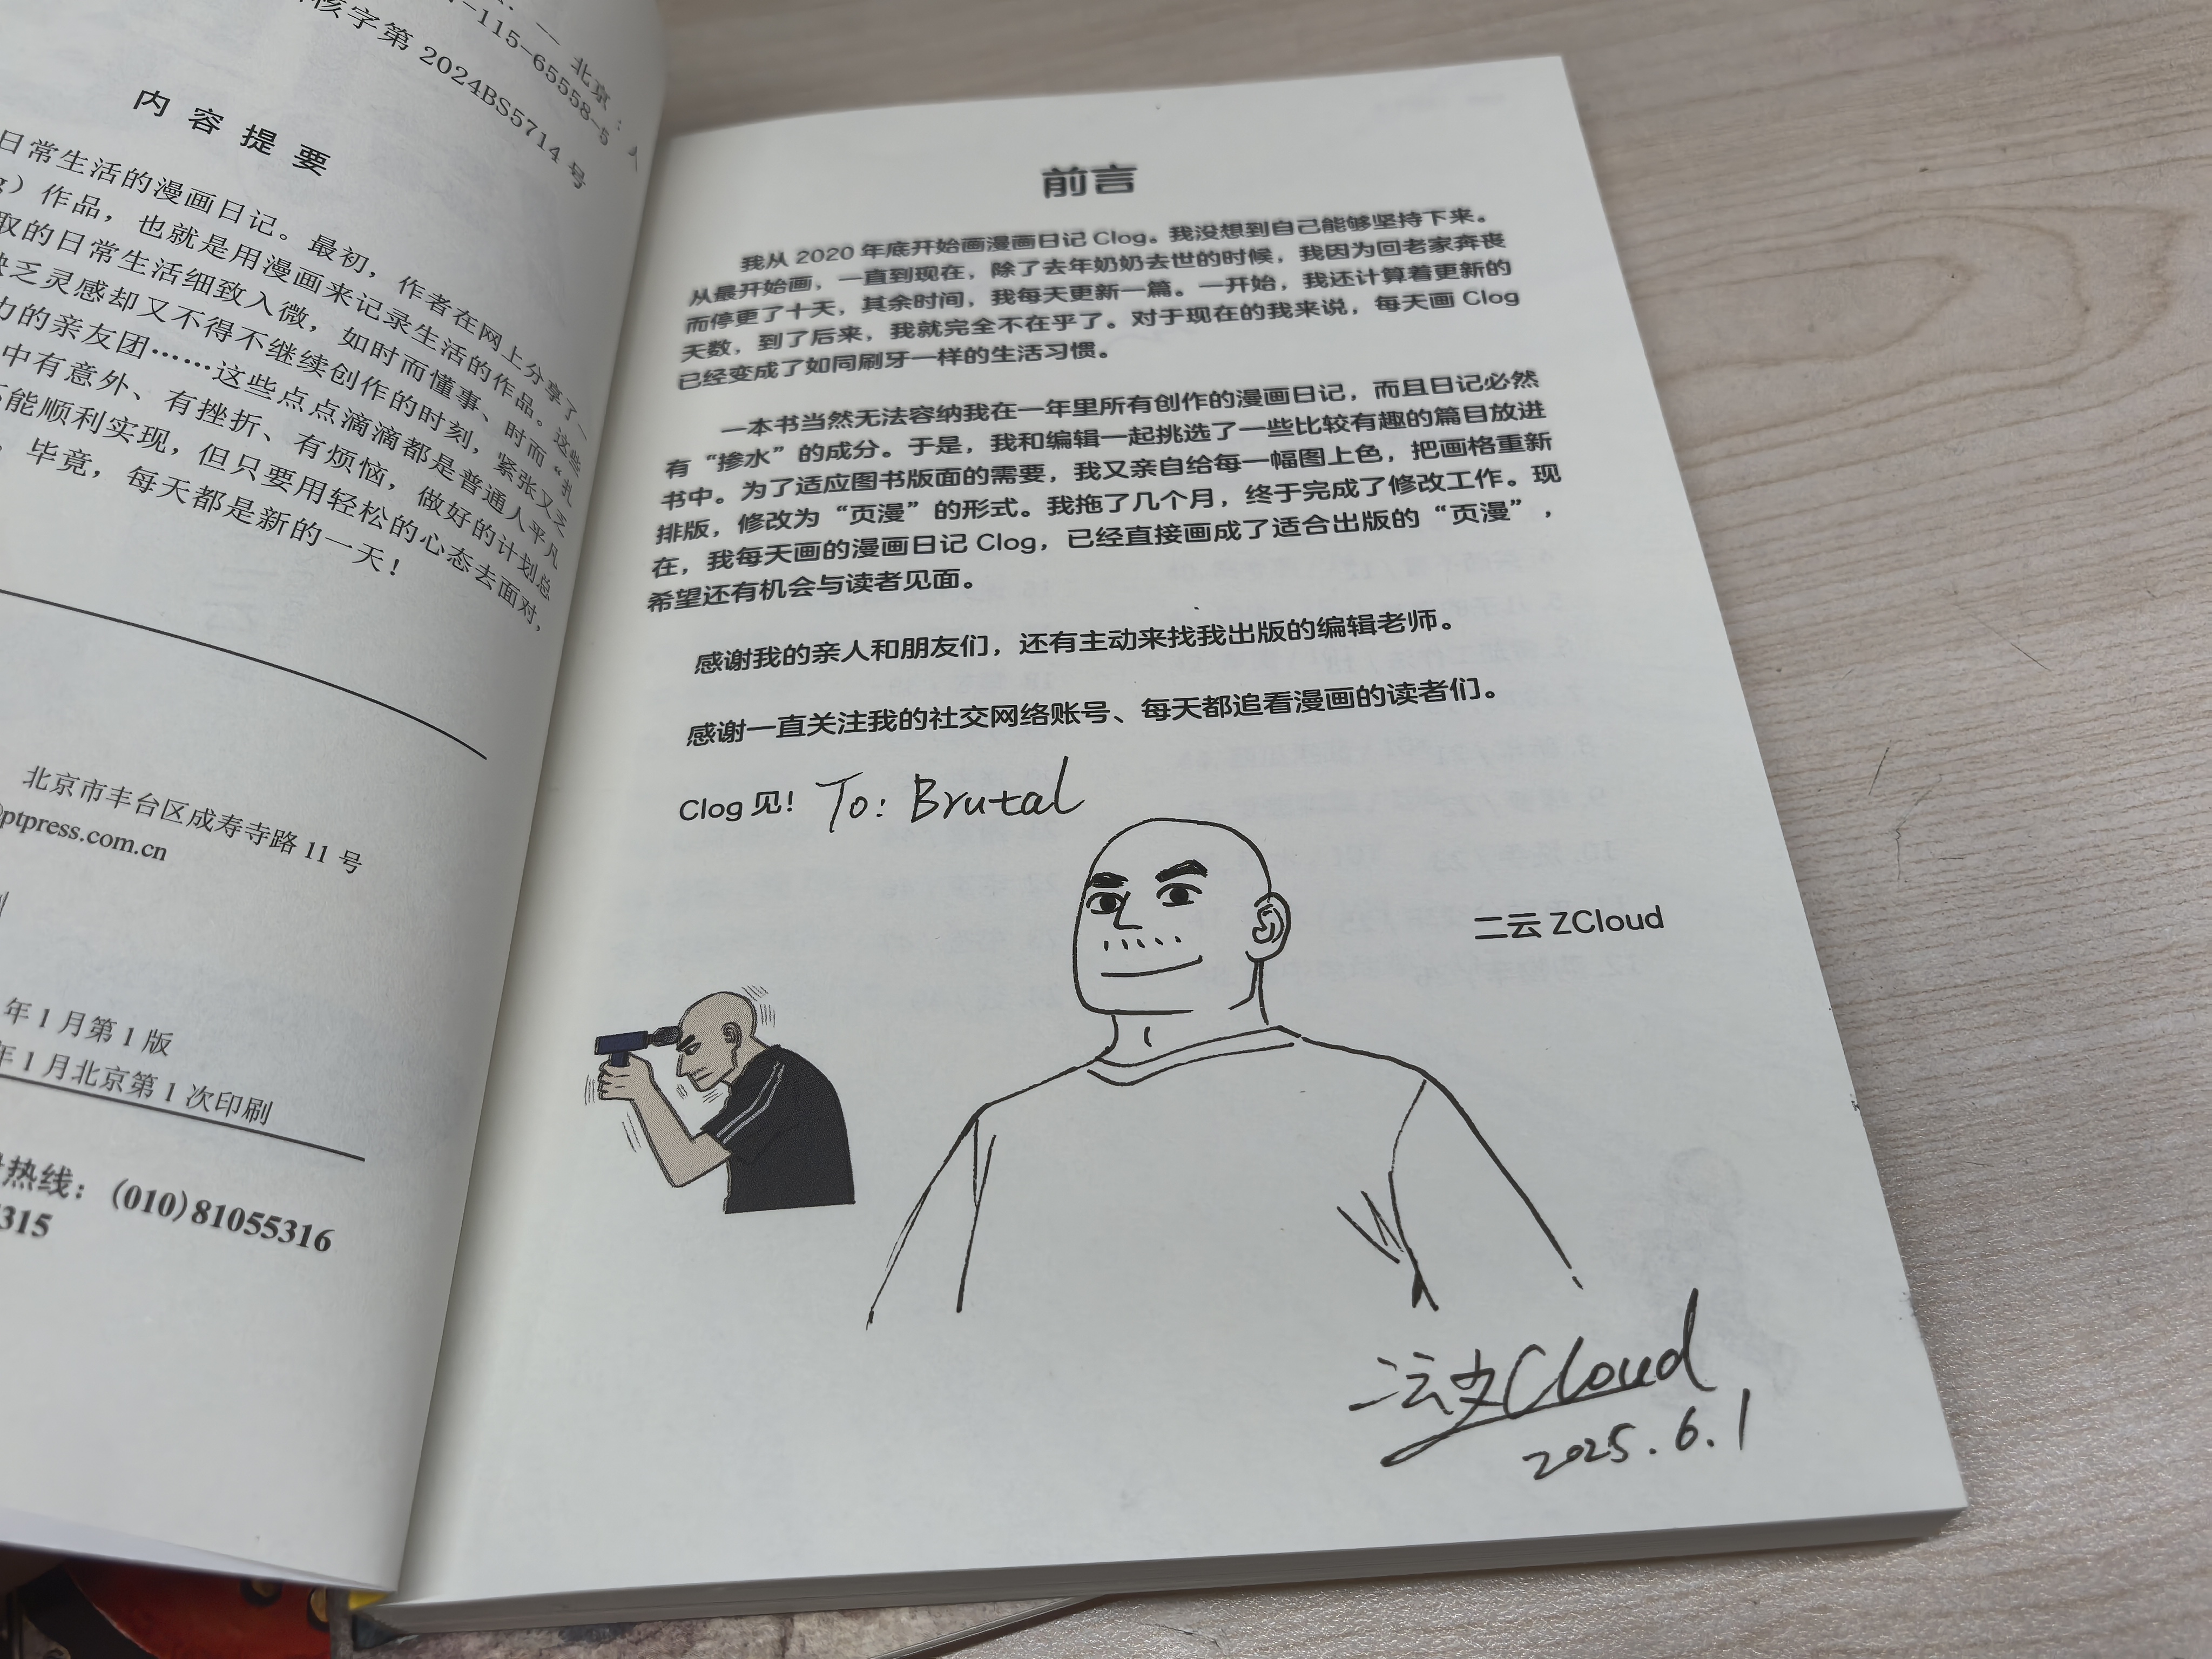 北京
-115-65558-5
核字第 2024BS5714 号
内 容 提 要
日常生活的漫画日记。最初，作者在网上分享了
）作品，也就是用漫画来记录生活的作品。这些
取的日常生活细致入微，如时而懂事、时而“扎
乏灵感却又不得不继续创作的时刻，紧张又乏
力的亲友团……这些点点滴滴都是普通人平凡
中有意外、有挫折、有烦恼，做好的计划总
能顺利实现，但只要用轻松的心态去面对，
毕竟，每天都是新的一天！
北京市丰台区成寿寺路 11 号
ptpress.com.cn
年 1 月第 1 版
年 1 月北京第 1 次印刷
热线：(010)81055316
315
前言
我从 2020 年底开始画漫画日记 Clog。我没想到自己能够坚持下来。
从最开始画，一直到现在，除了去年奶奶去世的时候，我因为回老家奔丧
而停更了十天，其余时间，我每天更新一篇。一开始，我还计算着更新的
天数，到了后来，我就完全不在乎了。对于现在的我来说，每天画 Clog
已经变成了如同刷牙一样的生活习惯。
一本书当然无法容纳我在一年里所有创作的漫画日记，而且日记必然
有“掺水”的成分。于是，我和编辑一起挑选了一些比较有趣的篇目放进
书中。为了适应图书版面的需要，我又亲自给每一幅图上色，把画格重新
排版，修改为“页漫”的形式。我拖了几个月，终于完成了修改工作。现
在，我每天画的漫画日记 Clog，已经直接画成了适合出版的“页漫”，
希望还有机会与读者见面。
感谢我的亲人和朋友们，还有主动来找我出版的编辑老师。
感谢一直关注我的社交网络账号、每天都追看漫画的读者们。
Clog 见! To: Brutal
二云 ZCloud
二云ZCloud
2025.6.1